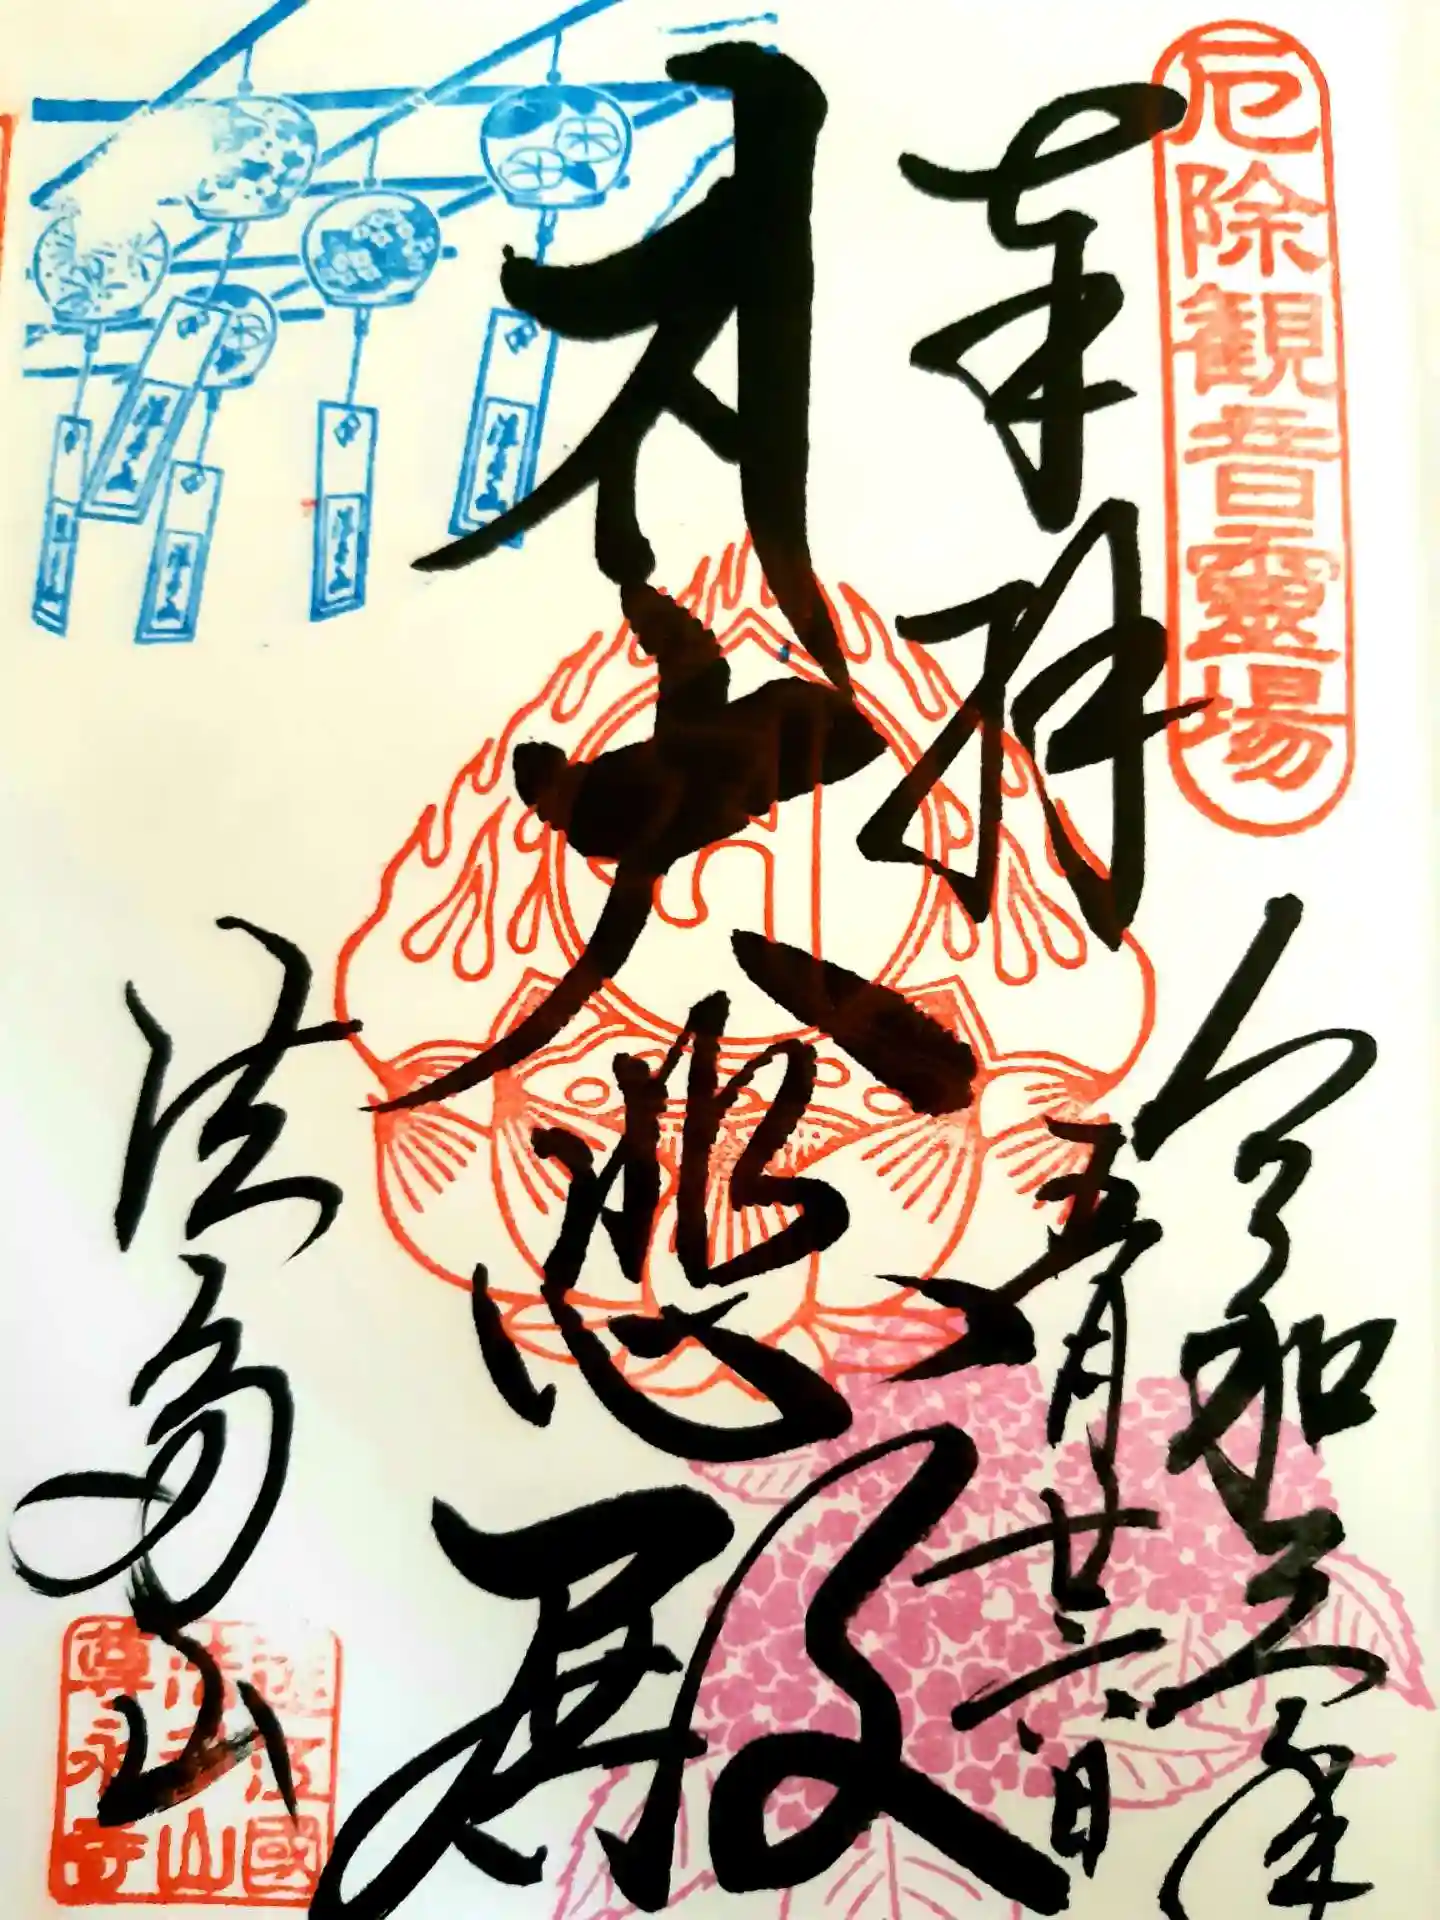 厄除観音霊場
奉拝
令和三年
五月廿六日
大悲殿
法多山
遠江國
法多山
尊永寺